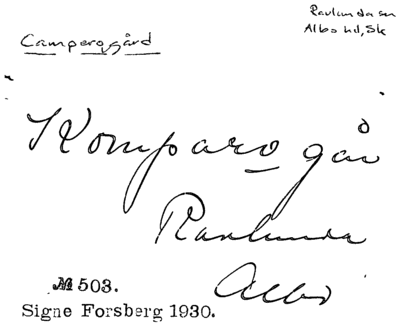 Camperogård
Ravlunda sn
Albo hd, Sk
Komparo går
Ravlunda
Albo
№ 503.
Signe Forsberg 1930.